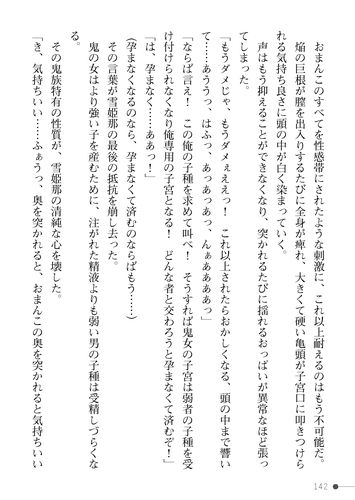 おまんこのすべてを性感帯にされたような刺激に、これ以上耐えるのはもう不可能だ。
焔の巨根が膣を出入りするたびに全身が痺れ、大きくて硬い亀頭が子宮口に叩きつけら
れる気持ち良さに頭の中が白く染まっていく。
声はもう抑えることができなくなり、突かれるたびに揺れるおっぱいが異常なほど張っ
てしまった。
「もうダメじゃ、もうダメぇええっ！　これ以上されたらおかしくなる、頭の中まで響い
て……あううっ、はふっ、あっあっあっ、んぁああああっ」
「ならば言え！　この俺の子種を求めて叫べ！　そうすれば鬼女の子宮は弱者の子種を受
け付けられなくなり俺専用の子宮となる！　どんな者と交わろうと孕まなくて済むぞ！」
「は、孕まなく……ああっ！」
(孕まなくなるのなら、孕まなくて済むのならばもう……)
その言葉が雪姫那の最後の抵抗を崩し去った。
鬼の女はより強い子を産むために、注がれた精液よりも弱い男の子種は受精しづらくな
る。
その鬼族特有の性質が、雪姫那の清純な心を壊した。
「き、気持ちいい……ふぁうっ、奥を突かれると、おまんこの奥を突かれると気持ちいい
142